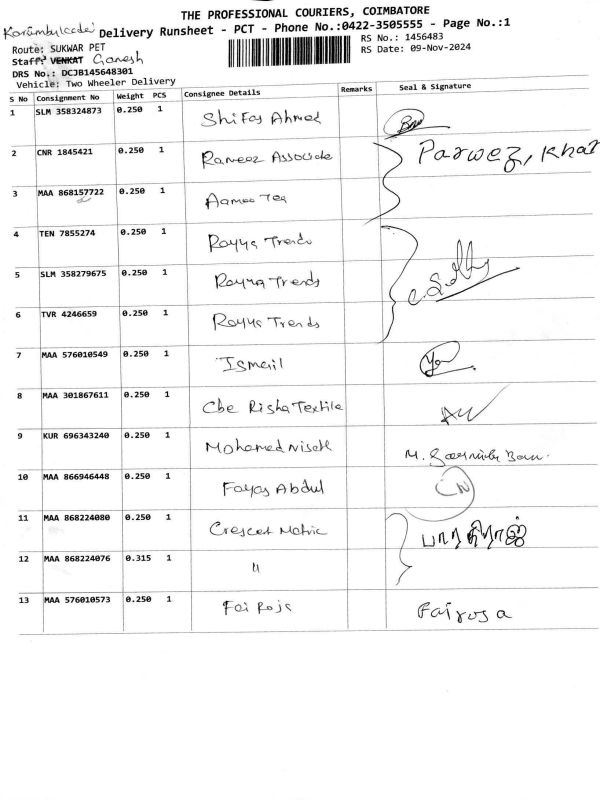 THE PROFESSIONAL COURIERS, COIMBATORE
Delivery Runsheet - PCT - Phone No.:0422-3505555 - Page No.:1
Route: SUKWAR PET
RS No.: 1456483
Staff: VENKAT Ganesh
RS Date: 09-Nov-2024
DRS No.: DCJB145648301
Vehicle: Two Wheeler Delivery
S No Consignment No Weight PCS Consignee Details Remarks Seal & Signature
1 SLM 358324873 0.250 1 Shifas Ahmed
2 CNR 1845421 0.250 1 Rameez Associate Parwez, Khat
3 MAA 868157722 0.250 1 Aamoo Tea
4 TEN 7855274 0.250 1 Rayya Trends
5 SLM 358279675 0.250 1 Rayya Trends
6 TVR 4246659 0.250 1 Rayya Trends
7 MAA 576010549 0.250 1 Ismail
8 MAA 301867611 0.250 1 Cbe Risha Textile
9 KUR 696343240 0.250 1 Mohamed M.
10 MAA 866946448 0.250 1 Fayas Abdul
11 MAA 868224080 0.250 1 Crescet Matric பாரதிராஜ்
12 MAA 868224076 0.315 1 "
13 MAA 576010573 0.250 1 Fairoja Fairosa